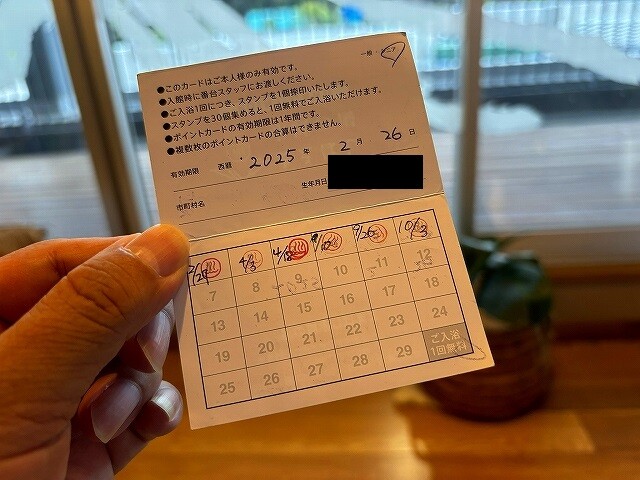 一般・シニア
●このカードはご本人様のみ有効です。
●入館時に番台スタッフにお渡しください。
●ご入浴1回につき、スタンプを1個捺印いたします。
●スタンプを30個集めると、1回無料でご入浴いただけます。
●ポイントカードの有効期限は1年間です。
●複数枚のポイントカードの合算はできません。
有効期限 西暦 2025 年 2 月 26 日
市町村名 生年月日
4/3 4/18 9/26 10/3
7 8 9 10 11 12
13 14 15 16 17 18
19 20 21 22 23 24
25 26 27 28 29 ご入浴
1回無料